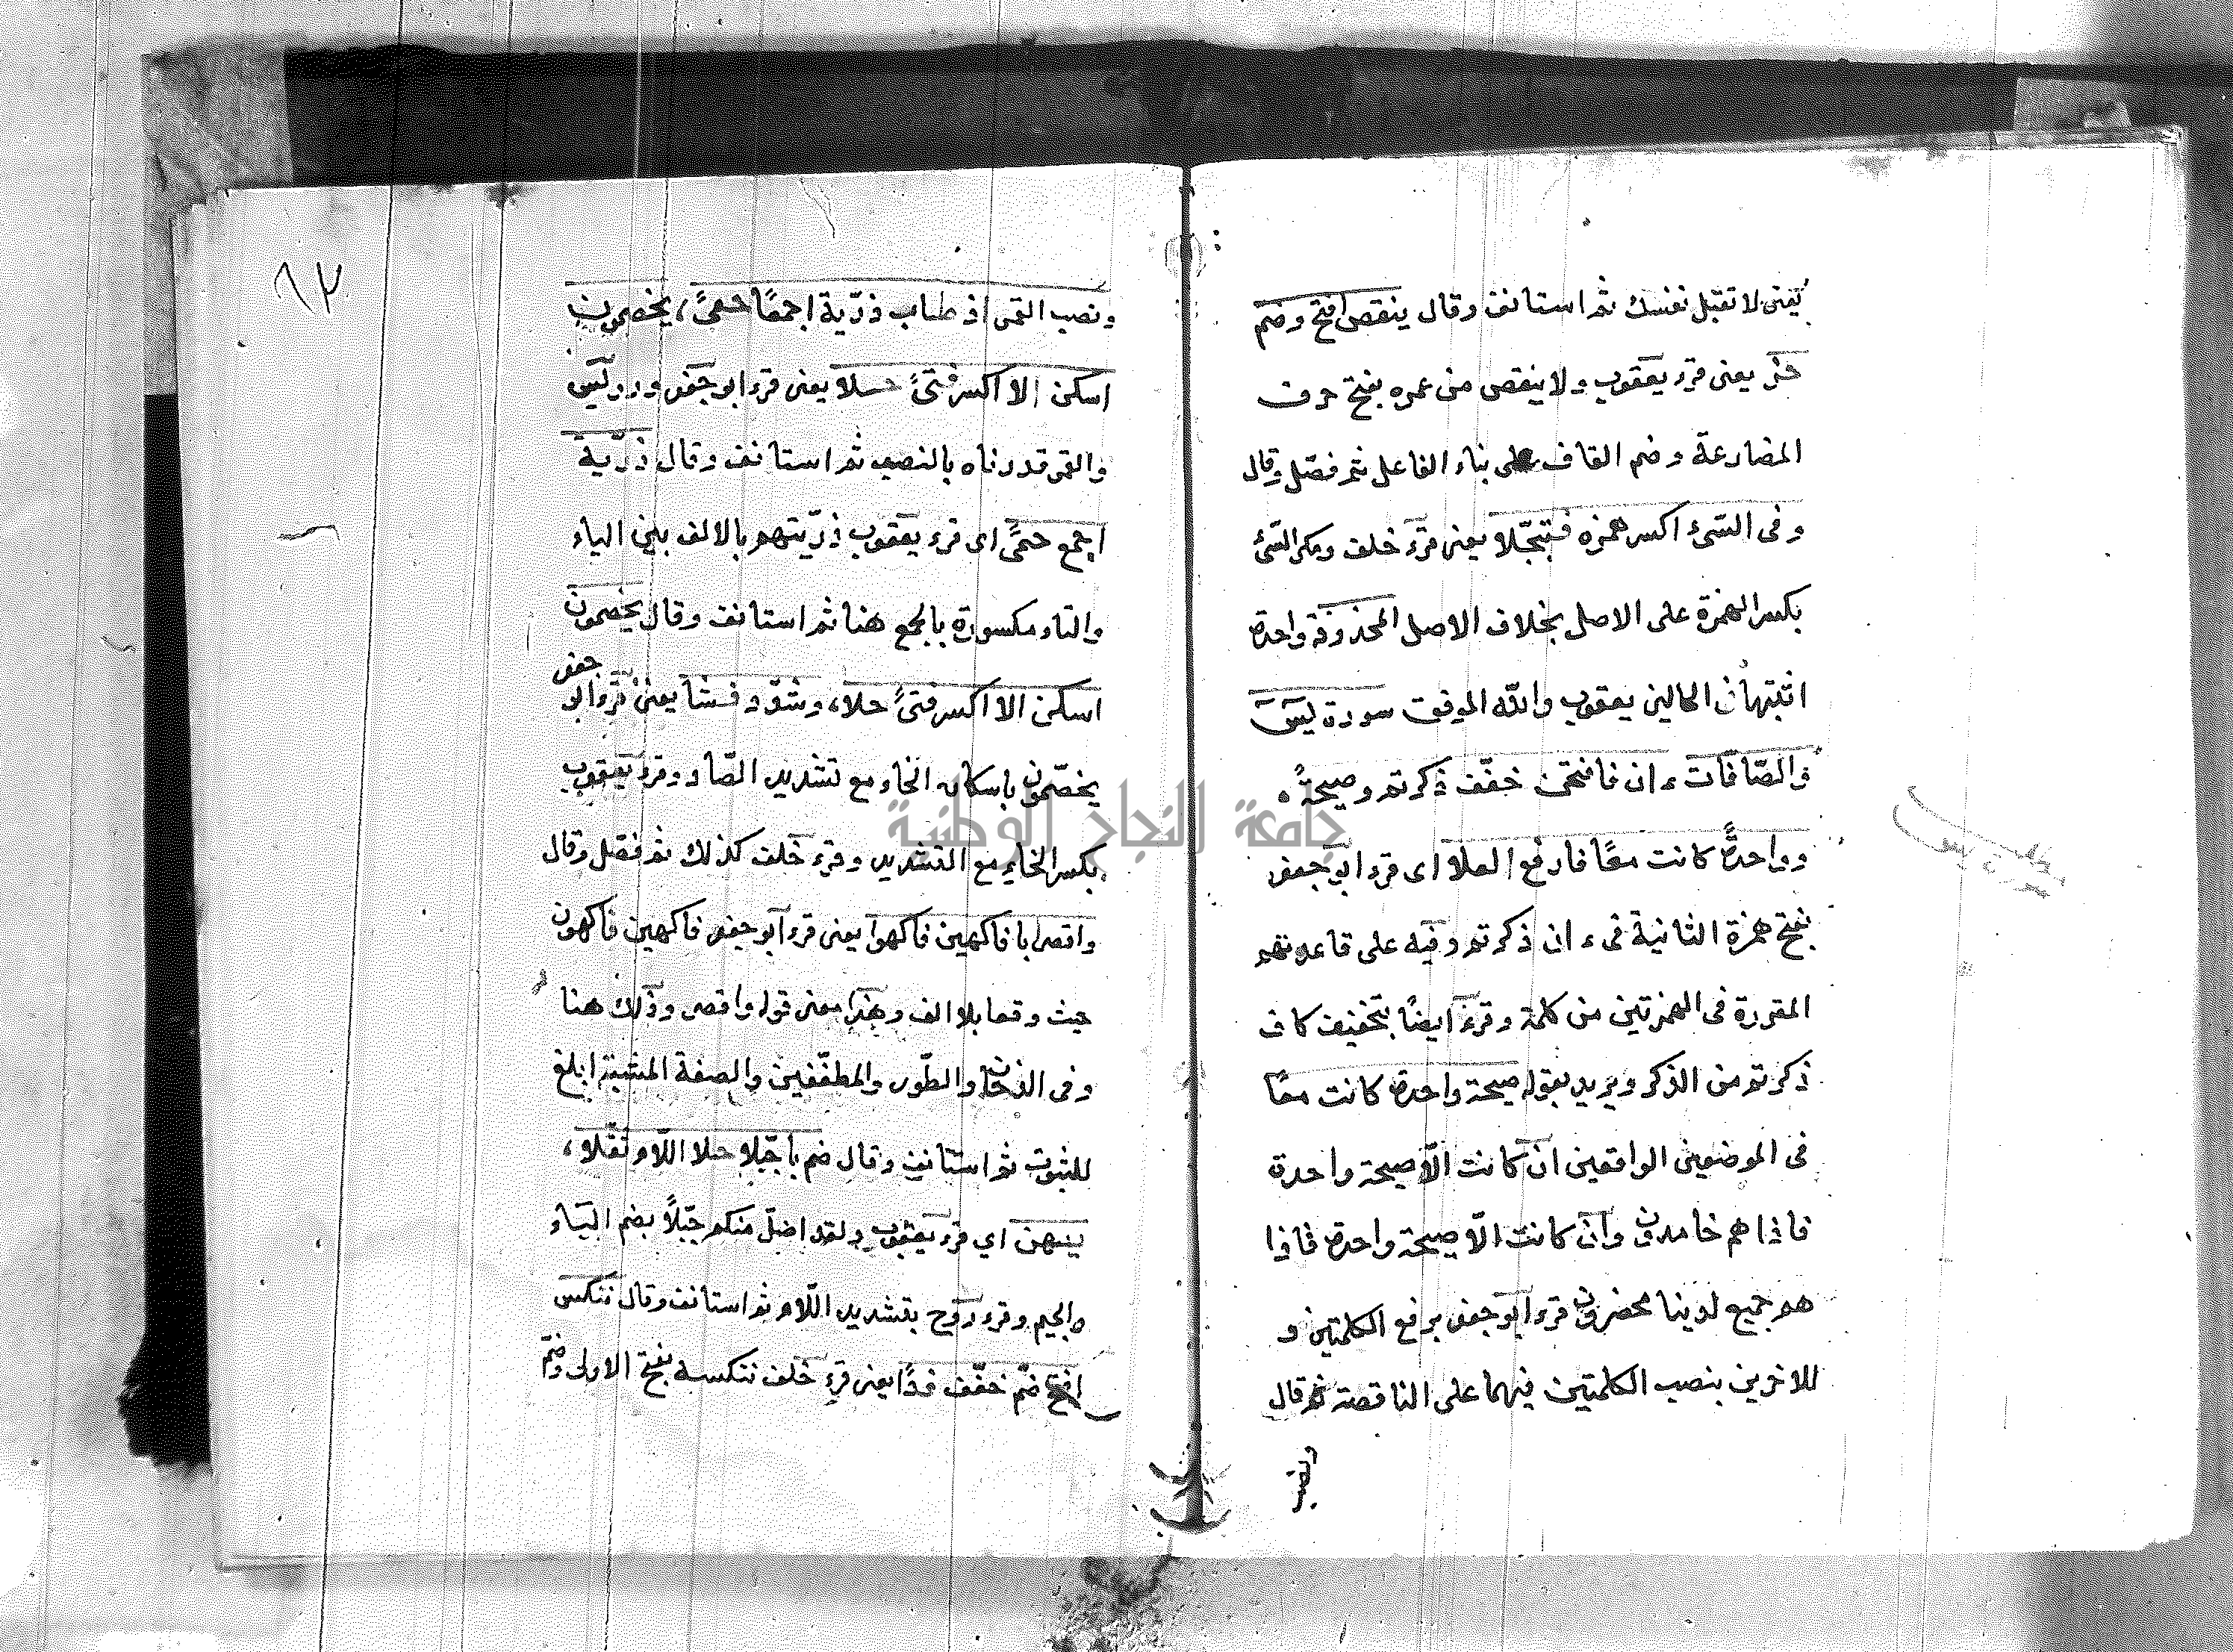 يعنى لا تقبل نفسك ثم استانف وقال ينقص افتح وضم
حز يعنى قرء يعقوب ولا ينقص من عمره بفتح حرف
المضارعة وضم القاف على بناء الفاعل ثم فصل وقال
وفى السئ اكسر همزه فتبجلا يعنى قرء خلف ومكر السئ
بكسر الهمزة على الاصل بخلاف الاصل المحذوفة واحدة
اثبتها فى الحالين يعقوب والله الموفق سورة يس
والصافات ءان فافتحن خفف ذكرتم وصيحة
وواحدة كانت معا فارفع العلا اى قرء ابو جعفر
بفتح همزة الثانية فى ءان ذكرتم وفيه على قاعدتهم
المقررة فى الهمزتين من كلمة وقرء ايضا بتخفيف كاف
ذكرتم من الذكر ويريد بقوله صيحة واحدة كانت معا
فى الموضعين الواقعين ان كانت الا صيحة واحدة
فاذا هم خامدون وان كانت الا صيحة واحدة فاذا
هم جميع لدينا محضرون قرء ابو جعفر برفع الكلمتين و
للاخرين بنصب الكلمتين فيهما على الناقصة ثم قال
ونصب
٩٣
ونصب القمر اذ طاب ذرية اجمعا حمى، يخصمون
اسكن الا اكسر فتى حلا يعنى قرء ابو جعفر ورويس
والقمر قدرناه بالنصب ثم استانف وقال ذرية
اجمع حمى اى قرء يعقوب ذريتهم بالالف بين الياء
والتاء مكسورة بالجمع هنا ثم استانف وقال يخصمون
اسكن الا اكسر فتى حلا، وشدد فشا يعنى قرء ابو جعفر
يخصمون باسكان الخاء مع تشديد الصاد وقرء يعقوب
بكسر الخاء مع التشديد وقرء خلف كذلك ثم فصل وقال
واقصر ابا فاكهين فاكهوا يعنى قرء ابو جعفر فاكهين فاكهون
حيث وقعا بلا الف وهذا معنى قوله واقصر وذلك هنا
وفى الدخان والطور والمطففين والصفة المشبهة ابلغ
للثبوت ثم استانف وقال ضم با جبلا حلا اللام ثقلا،
يبهن اي قرء يعقوب ولقد اضل منكم جبلا بضم الباء
والجيم وقرء روح بتشديد اللام ثم استانف وقال ننكس
افتح ضم خفف فدا يعنى قرء خلف ننكسه بفتح الاولى وضم
جامعة النجاح الوطنية